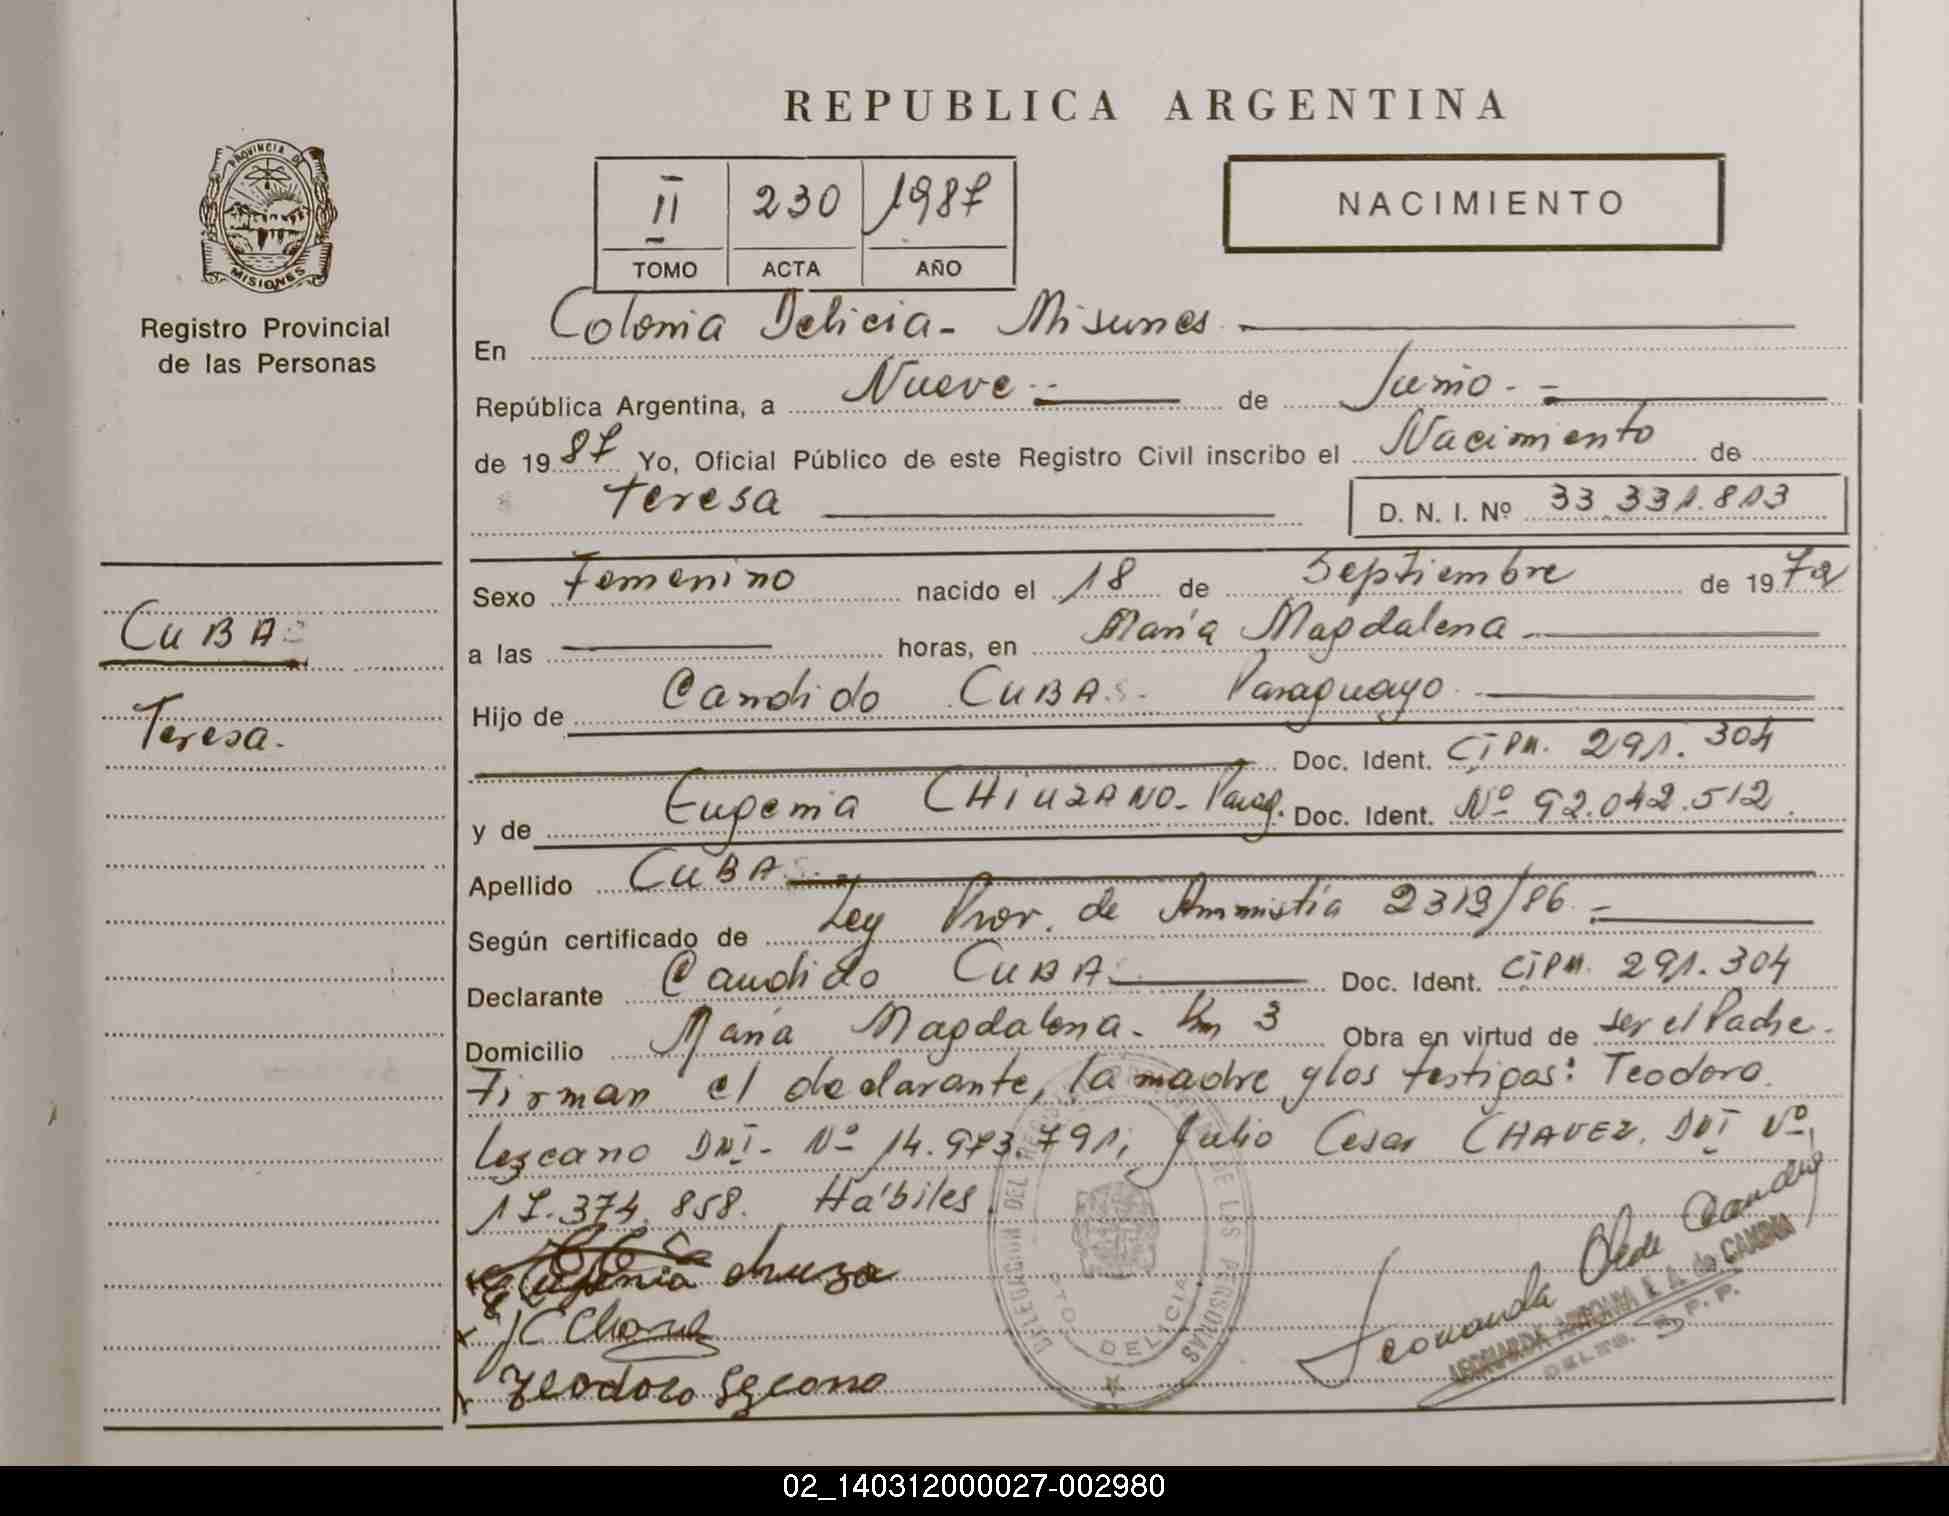 REPUBLICA ARGENTINA
PROVINCIA DE
MISIONES
Registro Provincial
de las Personas
II 230 1987
TOMO ACTA AÑO
NACIMIENTO
CUBA
Teresa.
En Colonia Delicia - Misiones
República Argentina, a Nueve de Junio
de 1987 Yo, Oficial Público de este Registro Civil inscribo el Nacimiento de
Teresa D. N. I. Nº 33.331.813
Sexo Femenino nacido el 18 de Septiembre de 197
a las horas, en María Magdalena
Hijo de Candido CUBA Paraguayo
Doc. Ident. CIPM. 291.304
y de Eugenia CHIUZANO - Parag. Doc. Ident. Nº 92.042.512
Apellido CUBA
Según certificado de Ley Prov. de Ammistía 2319/86.-
Declarante Candido CUBA Doc. Ident. CIPM. 291.304
Domicilio María Magdalena - Km 3 Obra en virtud de ser el Padre.
Firman el declarante, la madre y los testigos: Teodoro
Lezcano DNI - Nº 14.973.791; Julio Cesar CHAVEZ, DNI Nº
17.374.858. Hábiles
Eugenia
JC Chavez
Teodoro Lezcano
DELEGACION DEL REGISTRO DE LAS PERSONAS
DTO. DELICIA
Leonarda
LEONARDA E. A. de CANDIA
02_140312000027-002980